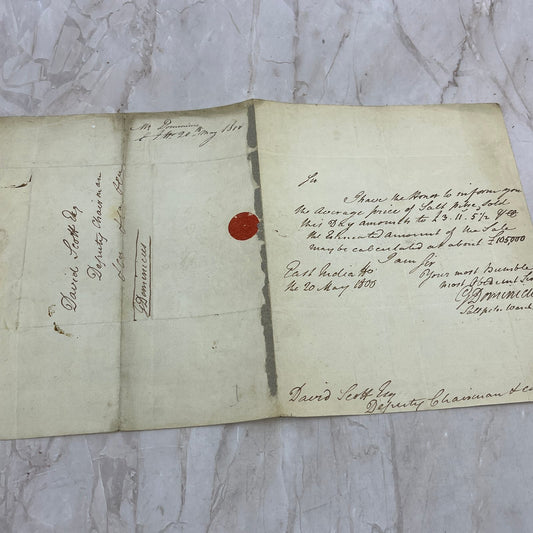 Mr Dominicus
20th May 1800
David Scott Esq
Deputy Chairman
&ca &ca &ca
G Dominicus
Sir
I have the Honor to inform you
the Average price of Salt Petre, sold
this Day amounts to £3.11.5½ &
the Estimated amount of the Sale
may be calculated at about £105000
I am Sir
Your most Humble
most Obedient
East India Ho
the 20 May 1800
G Dominicus
Saltpetre Ware
David Scott Esq
Deputy Chairman &c